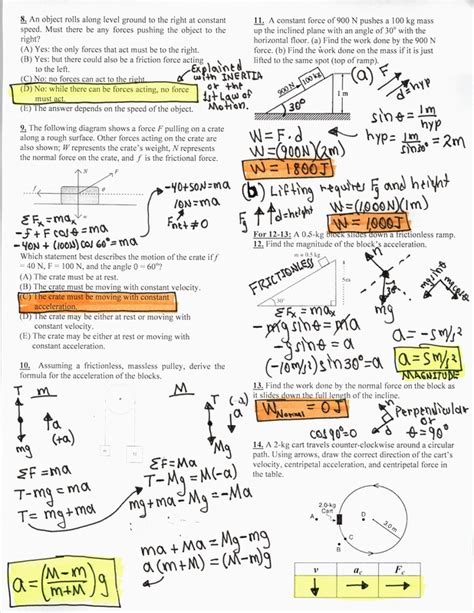 8. An object rolls along level ground to the right at constant
speed. Must there be any forces pushing the object to the
right?
(A) Yes: the only forces that act must be to the right.
(B) Yes: but there could also be a friction force acting
to the left.
(C) No: no forces can act to the right.
(D) No: while there can be forces acting, no force
must act.
(E) The answer depends on the speed of the object.
Explained
with INERTIA
or the
1st Law of
Motion.
9. The following diagram shows a force F pulling on a crate
along a rough surface. Other forces acting on the crate are
also shown; W represents the crate's weight, N represents
the normal force on the crate, and f is the frictional force.
N
F
ΣFx = max
-f + F cos θ = ma
-40N + (100N) cos 60° = ma
-40N + 50N = ma
10N = ma
Fnet ≠ 0
Which statement best describes the motion of the crate if f
= 40 N, F = 100 N, and the angle θ = 60°?
(A) The crate must be at rest.
(B) The crate must be moving with constant velocity.
(C) The crate must be moving with constant
acceleration.
(D) The crate may be either at rest or moving with
constant velocity.
(E) The crate may be either at rest or moving with
constant acceleration.
10. Assuming a frictionless, massless pulley, derive the
formula for the acceleration of the blocks.
T
m
a
(+a)
mg
M
T
(-a)
a
Mg
ΣF = ma
T - mg = ma
T = mg + ma
ΣF = Ma
T - Mg = M(-a)
mg + ma - Mg = -Ma
ma + Ma = Mg - mg
a(m + M) = (M - m)g
a = (M - m / m + M) g
11. A constant force of 900 N pushes a 100 kg mass
up the inclined plane with an angle of 30° with the
horizontal floor. (a) Find the work done by the 900 N
force. (b) Find the work done on the mass if it is just
lifted to the same spot (top of ramp).
900N
100kg
1 m
30°
(a)
F
d
hyp
sin θ = 1m / hyp
hyp = 1m / sin 30° = 2m
W = F · d
W = (900N)(2m)
W = 1800J
(b) Lifting requires Fg and height
F
d = height
W = (1000N)(1m)
W = 1000J
For 12-13: A 0.5-kg block slides down a frictionless ramp.
12. Find the magnitude of the block's acceleration.
FRICTIONLESS
m = 0.5 kg
5m
30°
mg
mg sin θ
ΣFx = max
-mg sin θ = ma
-g sin θ = a
(-10m/s²) sin 30° = a
a = -5m/s²
a = 5m/s²
MAGNITUDE
13. Find the work done by the normal force on the block as
it slides down the full length of the incline.
W Normal = 0J
cos 90° = 0
Perpendicular
or
90°
14. A 2-kg cart travels counter-clockwise around a circular
path. Using arrows, draw the correct direction of the cart's
velocity, centripetal acceleration, and centripetal force in
the table.
2.0-kg
Cart
A
B
C
D
3.0m
v
ac
Fc